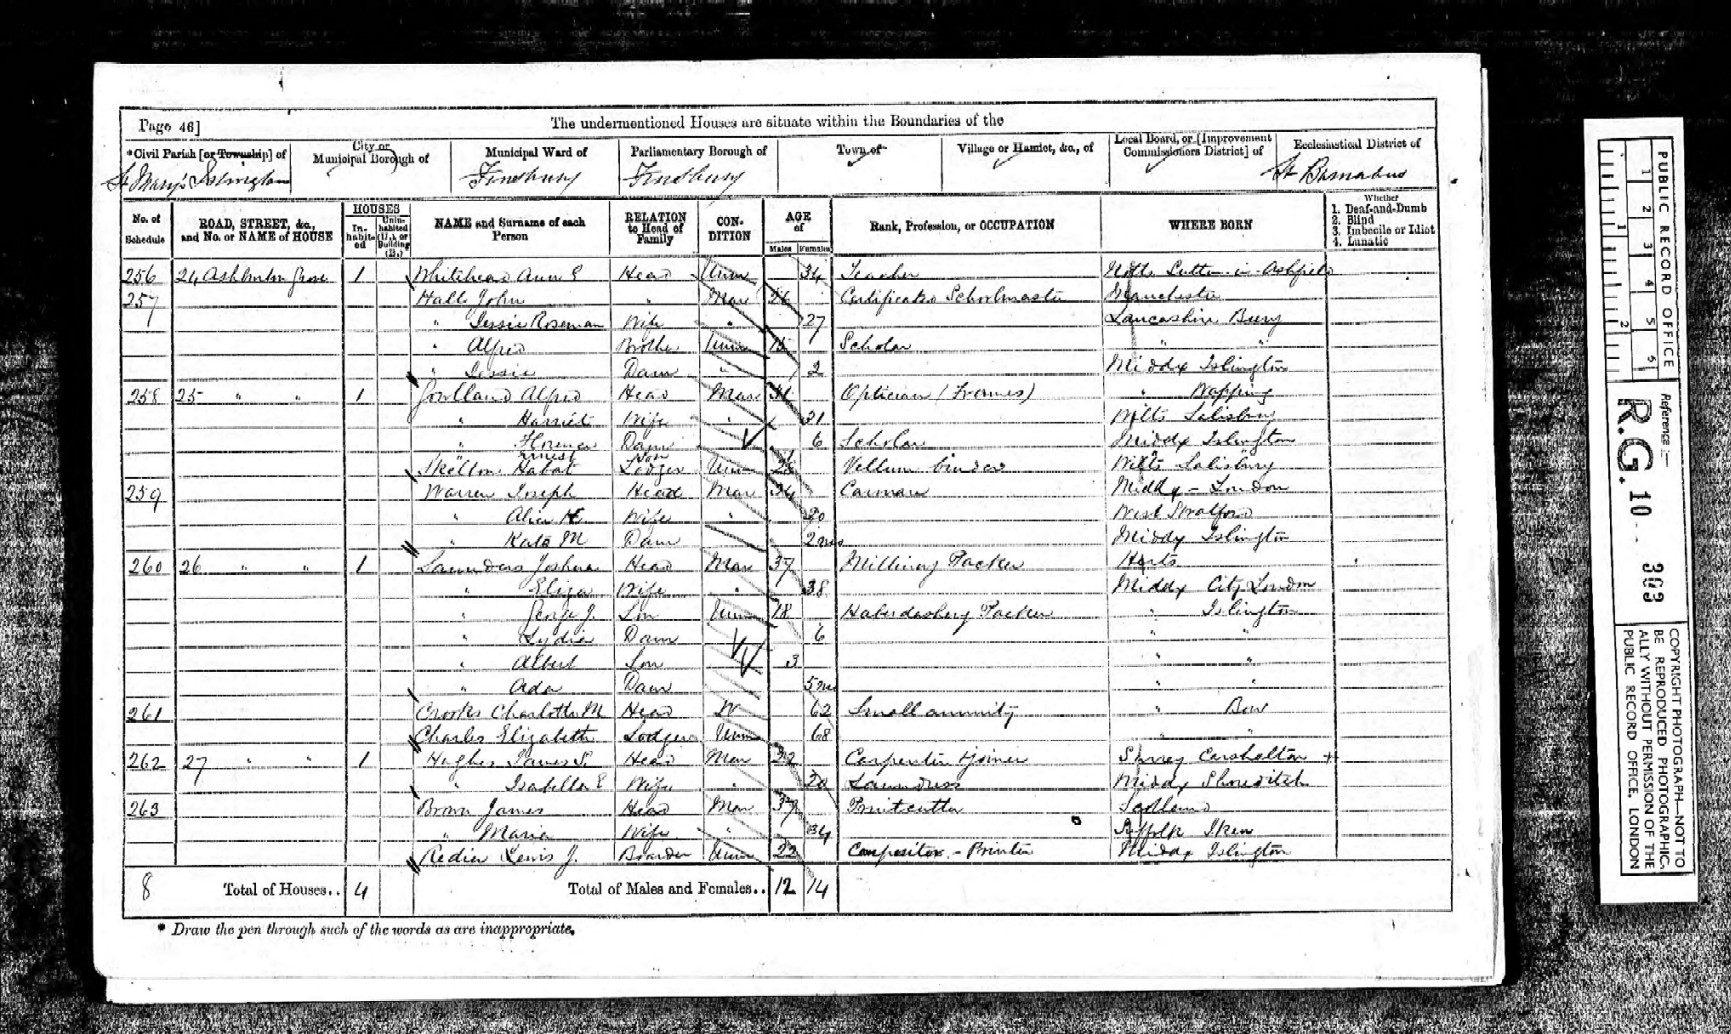 Page 46] The undermentioned Houses are situate within the Boundaries of the
*Civil Parish [or Township] of City or Municipal Borough of Municipal Ward of Parliamentary Borough of Town of Village or Hamlet, &c., of Local Board, or [Improvement Commissioners District] of Ecclesiastical District of
St Mary's Islington Finsbury Finsbury St Barnabas
No. of Schedule ROAD, STREET, &c., and No. or NAME of HOUSE HOUSES Inhabited Uninhabited (U.), or Building (B.) NAME and Surname of each Person RELATION to Head of Family CONDITION AGE of Males Females Rank, Profession, or OCCUPATION WHERE BORN Whether 1. Deaf-and-Dumb 2. Blind 3. Imbecile or Idiot 4. Lunatic
256 24 Ashburton Grove 1 Whitehead Ann E Head Unm 34 Teacher Notts Sutton in Ashfield
257 Hall John " Mar 26 Certificated Schoolmaster Manchester
" Jessie Wife " 27 Lancashire Bury
" Alfred Brother Unm Scholar " "
" Jessie Daur " 2 Middx Islington
258 25 " " 1 Alfred Head Mar 31 Optician (Frames) " Wapping
" Harriet Wife " 31 Wilts Salisbury
" Florence Daur 6 Scholar Middx Islington
Skelton Lodger Unm Vellum binder Wilts Salisbury
259 Warren Joseph Head Mar 24 Carman Middx - London
" Alice H Wife " 20 West Stratford
" Kate M Daur 2 mos Middx Islington
260 26 " " 1 Saunders Joshua Head Mar 37 Millinery Packer Herts
" Eliza Wife " 38 Middx City London
" George J. Son Unm 18 Haberdashery Packer " Islington
" Lydia Daur 6 " "
" Albert Son 3 " "
" Ada Daur 5 mo " "
261 Crooks Charlotte M Head W 62 Small annuity " Bow
Charles Elizabeth Lodger Unm 68 " "
262 27 " " 1 Hughes James S. Head Mar 22 Carpenter & Joiner Surrey Carshalton +
" Isabella E Wife " 20 Laundress Middx Shoreditch
263 Brown James Head Mar 37 Printcutter Scotland
" Maria Wife " 34 Suffolk Iken
Redier Lewis J. Boarder Unm 22 Compositor - Printer Middx Islington
8 Total of Houses.. 4 Total of Males and Females.. 12 14
* Draw the pen through such of the words as are inappropriate.
PUBLIC RECORD OFFICE
1 2 3 4 5 6
1 2
Reference:—
R.G. 10 303
COPYRIGHT PHOTOGRAPH—NOT TO BE REPRODUCED PHOTOGRAPHICALLY WITHOUT PERMISSION OF THE PUBLIC RECORD OFFICE, LONDON